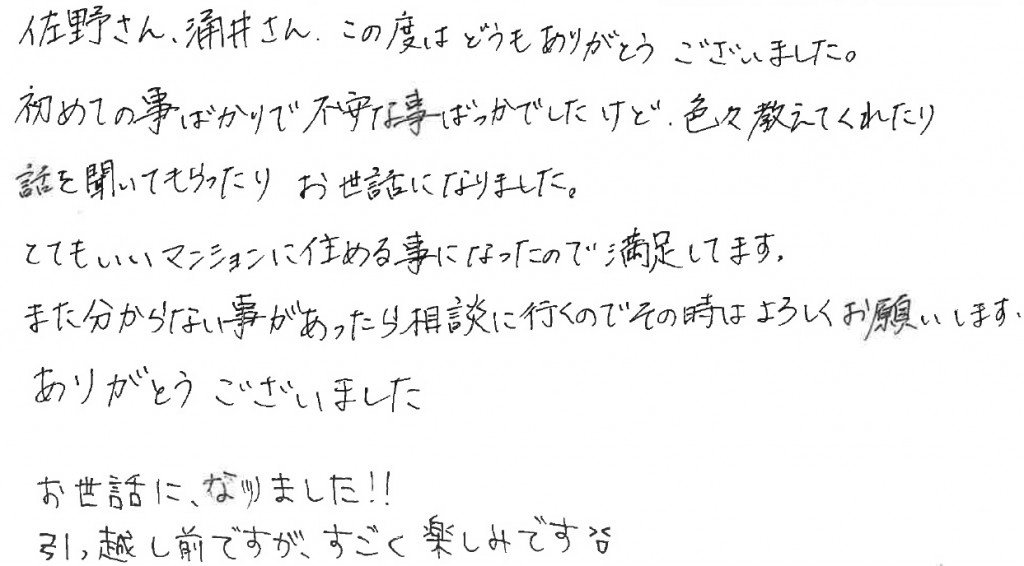 佐野さん、涌井さん、この度はどうもありがとうございました。
初めての事ばかりで不安な事ばっかでしたけど、色々教えてくれたり
話を聞いてもらったり お世話になりました。
とてもいいマンションに住める事になったので満足してます。
また分からない事があったら相談に行くのでその時はよろしくお願いします。
ありがとうございました
お世話に、なりました!!
引っ越し前ですが、すごく楽しみです